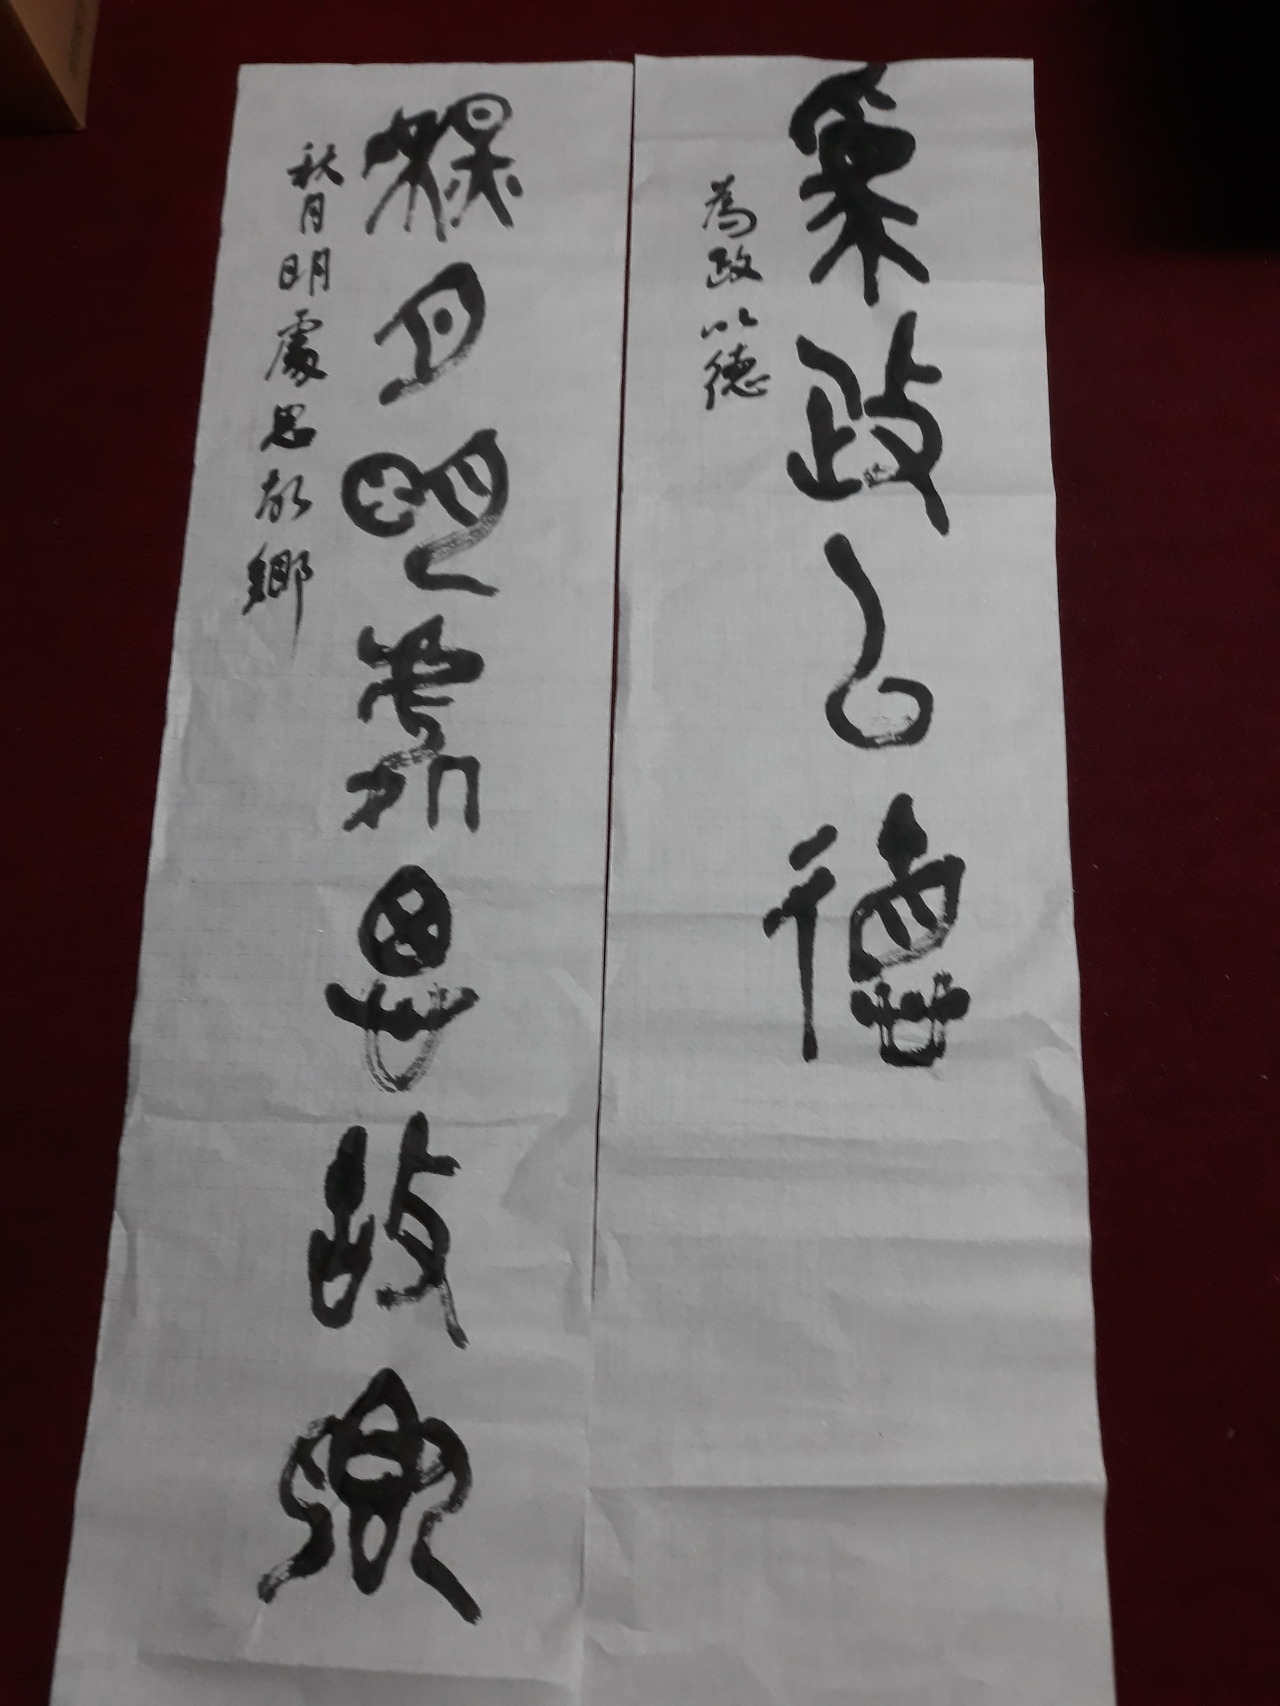 為政以德
為政以德
秋月明處思故鄉
秋月明處思故鄉